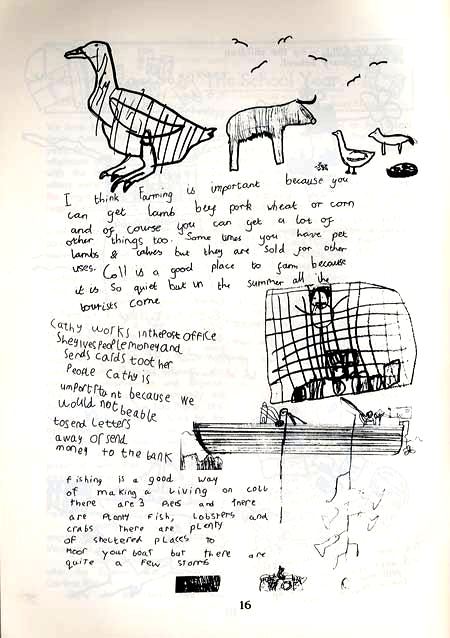 I think Farming is important because you
can get lamb beef pork wheat or corn
and of course you can get a lot of
other things too. Some times you have pet
lambs & calves but they are sold for other
uses. Coll is a good place to farm because
it is so quiet but in the summer all the
tourists come
Cathy works in the Post office
She gives people money and
sends calds too ther
People Cathy is
umportPtant because we
would not be able
to send letters
away or send
money to the bank
Fishing is a good way
of making a living on Coll
there are 3 Piers and there
are Plenty fish, lobsters and
crabs there are plenty
of sheltered places to
moor your boat but there are
quite a few storms
16